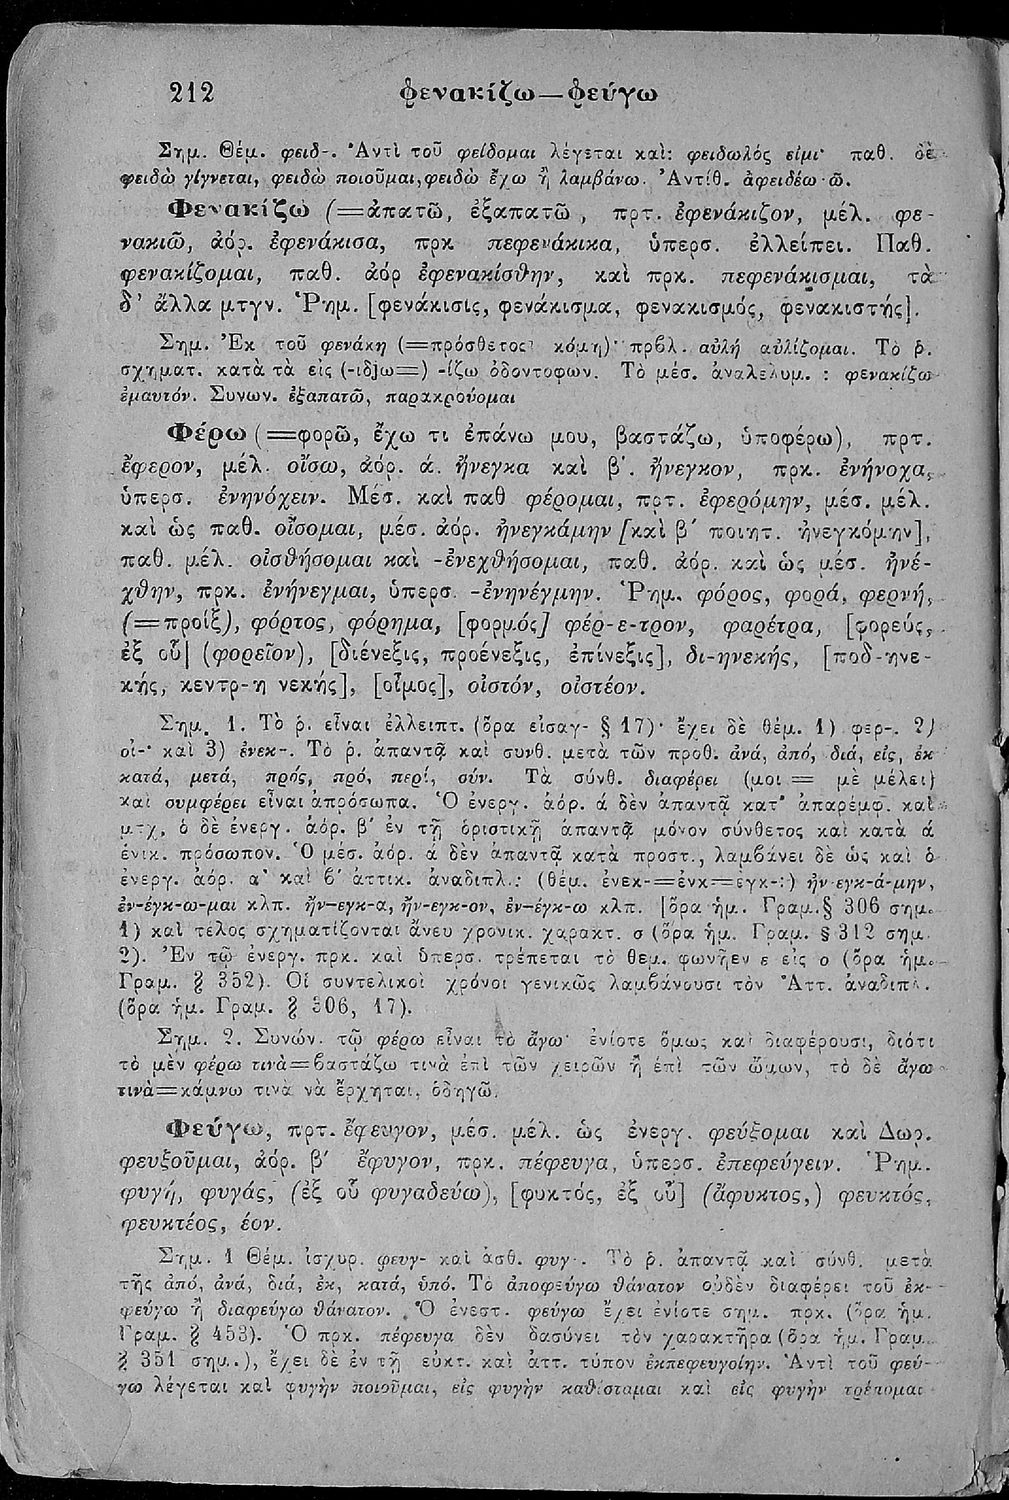 212 φενακίζω—φεύγω
Σημ. Θέμ. φειδ-. Ἀντὶ τοῦ φείδομαι λέγεται καὶ: φειδωλός εἰμι· παθ. δὲ
φειδὼ γίγνεται, φειδὼ ποιοῦμαι, φειδὼ ἔχω ἢ λαμβάνω. Ἀντίθ. ἀφειδέω-ῶ.
Φενακίζω (=ἀπατῶ, ἐξαπατῶ, πρτ. ἐφενάκιζον, μέλ. φε-
νακιῶ, ἀόρ. ἐφενάκισα, πρκ πεφενάκικα, ὑπερσ. ἐλλείπει. Παθ.
φενακίζομαι, παθ. ἀόρ ἐφενακίσθην, καὶ πρκ. πεφενάκισμαι, τὰ
δ' ἄλλα μτγν. Ῥημ. [φενάκισις, φενάκισμα, φενακισμός, φενακιστής].
Σημ. Ἐκ τοῦ φενάκη (=πρόσθετος κόμη)· πρβλ. αὐλή αὐλίζομαι. Τὸ ῥ.
σχηματ. κατὰ τὰ εἰς (-ιδjω=) -ίζω ὀδοντοφων. Τὸ μέσ. ἀναλελυμ. : φενακίζω
ἐμαυτόν. Συνων. ἐξαπατῶ, παρακρούομαι
Φέρω (=φορῶ, ἔχω τι ἐπάνω μου, βαστάζω, ὑποφέρω), πρτ.
ἔφερον, μέλ. οἴσω, ἀόρ. ά. ἤνεγκα καὶ β'. ἤνεγκον, πρκ. ἐνήνοχα,
ὑπερσ. ἐνηνόχειν. Μέσ. καὶ παθ φέρομαι, πρτ. ἐφερόμην, μέσ. μέλ.
καὶ ὡς παθ. οἴσομαι, μέσ. ἀόρ. ἠνεγκάμην [καὶ β' ποιητ. ἠνεγκόμην],
παθ. μέλ. οἰσθήσομαι καὶ -ἐνεχθήσομαι, παθ. ἀόρ. καὶ ὡς μέσ. ἠνέ-
χθην, πρκ. ἐνήνεγμαι, ὑπερσ. -ἐνηνέγμην. Ῥημ. φόρος, φορά, φερνή,
(=προίξ), φόρτος, φόρημα, [φορμός] φέρ-ε-τρον, φαρέτρα, [φορεύς,
ἐξ οὗ] (φορεῖον), [διένεξις, προένεξις, ἐπίνεξις], δι-ηνεκής, [ποδ-ηνε-
κής, κεντρ-η νεκής], [οἶμος], οἰστόν, οἰστέον.
Σημ. 1. Τὸ ῥ. εἶναι ἐλλειπτ. (ὅρα εἰσαγ- § 17)· ἔχει δὲ θέμ. 1) φερ-. 2)
οἰ-· καὶ 3) ἐνεκ-. Τὸ ῥ. ἀπαντᾷ καὶ συνθ. μετὰ τῶν προθ. ἀνά, ἀπό, διά, εἰς, ἐκ
κατά, μετά, πρός, πρό, περί, σύν. Τὰ σύνθ. διαφέρει (μοι = μὲ μέλει)
καὶ συμφέρει εἶναι ἀπρόσωπα. Ὁ ἐνεργ. ἀόρ. ά δὲν ἀπαντᾷ κατ' ἀπαρέμφ. καὶ
μτχ, ὁ δὲ ἐνεργ. ἀόρ. β' ἐν τῇ ὁριστικῇ ἀπαντᾷ μόνον σύνθετος καὶ κατὰ ά
ἑνικ. πρόσωπον. Ὁ μέσ. ἀόρ. ά δὲν ἀπαντᾷ κατὰ προστ., λαμβάνει δὲ ὡς καὶ ὁ
ἐνεργ. ἀόρ. α' καὶ β' ἀττικ. ἀναδιπλ.: (θέμ. ἐνεκ-=ἐνκ=εγκ-:) ἠν-εγκ-ά-μην,
ἐν-έγκ-ω-μαι κλπ. ἤν-εγκ-α, ἤν-εγκ-ον, ἐν-έγκ-ω κλπ. [ὅρα ἡμ. Γραμ. § 306 σημ.
1) καὶ τέλος σχηματίζονται ἄνευ χρονικ. χαρακτ. σ (ὅρα ἡμ. Γραμ. § 312 σημ.
2). Ἐν τῷ ἐνεργ. πρκ. καὶ ὑπερσ. τρέπεται τὸ θεμ. φωνῆεν ε εἰς ο (ὅρα ἡμ.
Γραμ. § 352). Οἱ συντελικοὶ χρόνοι γενικῶς λαμβάνουσι τὸν Ἀττ. ἀναδιπλ.
(ὅρα ἡμ. Γραμ. § 306, 17).
Σημ. 2. Συνών. τῷ φέρω εἶναι τὸ ἄγω· ἐνίοτε ὅμως καὶ διαφέρουσι, διότι
τὸ μὲν φέρω τινὰ=βαστάζω τινὰ ἐπὶ τῶν χειρῶν ἢ ἐπὶ τῶν ὤμων, τὸ δὲ ἄγω
τινὰ=κάμνω τινὰ νὰ ἔρχηται, ὁδηγῶ.
Φεύγω, πρτ. ἔφευγον, μέσ. μέλ. ὡς ἐνεργ. φεύξομαι καὶ Δωρ.
φευξοῦμαι, ἀόρ. β' ἔφυγον, πρκ. πέφευγα, ὑπερσ. ἐπεφεύγειν. Ῥημ.
φυγή, φυγάς, (ἐξ οὗ φυγαδεύω), [φυκτός, ἐξ οὗ] (ἄφυκτος,) φευκτός,
φευκτέος, έον.
Σημ. 1 Θέμ. ἰσχυρ. φευγ- καὶ ἀσθ. φυγ-. Τὸ ῥ. ἀπαντᾷ καὶ σύνθ. μετὰ
τῆς ἀπό, ἀνά, διά, ἐκ, κατά, ὑπό. Τὸ ἀποφεύγω θάνατον οὐδὲν διαφέρει τοῦ ἐκ-
φεύγω ἢ διαφεύγω θάνατον. Ὁ ἐνεστ. φεύγω ἔχει ἐνίοτε σημ. πρκ. (ὅρα ἡμ.
Γραμ. § 453). Ὁ πρκ. πέφευγα δὲν δασύνει τὸν χαρακτῆρα (ὅρα ἡμ. Γραμ.
§ 351 σημ..), ἔχει δὲ ἐν τῇ εὐκτ. καὶ ἀττ. τύπον ἐκπεφευγοίην. Ἀντὶ τοῦ φεύ-
γω λέγεται καὶ φυγὴν ποιοῦμαι, εἰς φυγὴν καθίσταμαι καὶ εἰς φυγὴν τρέπομαι